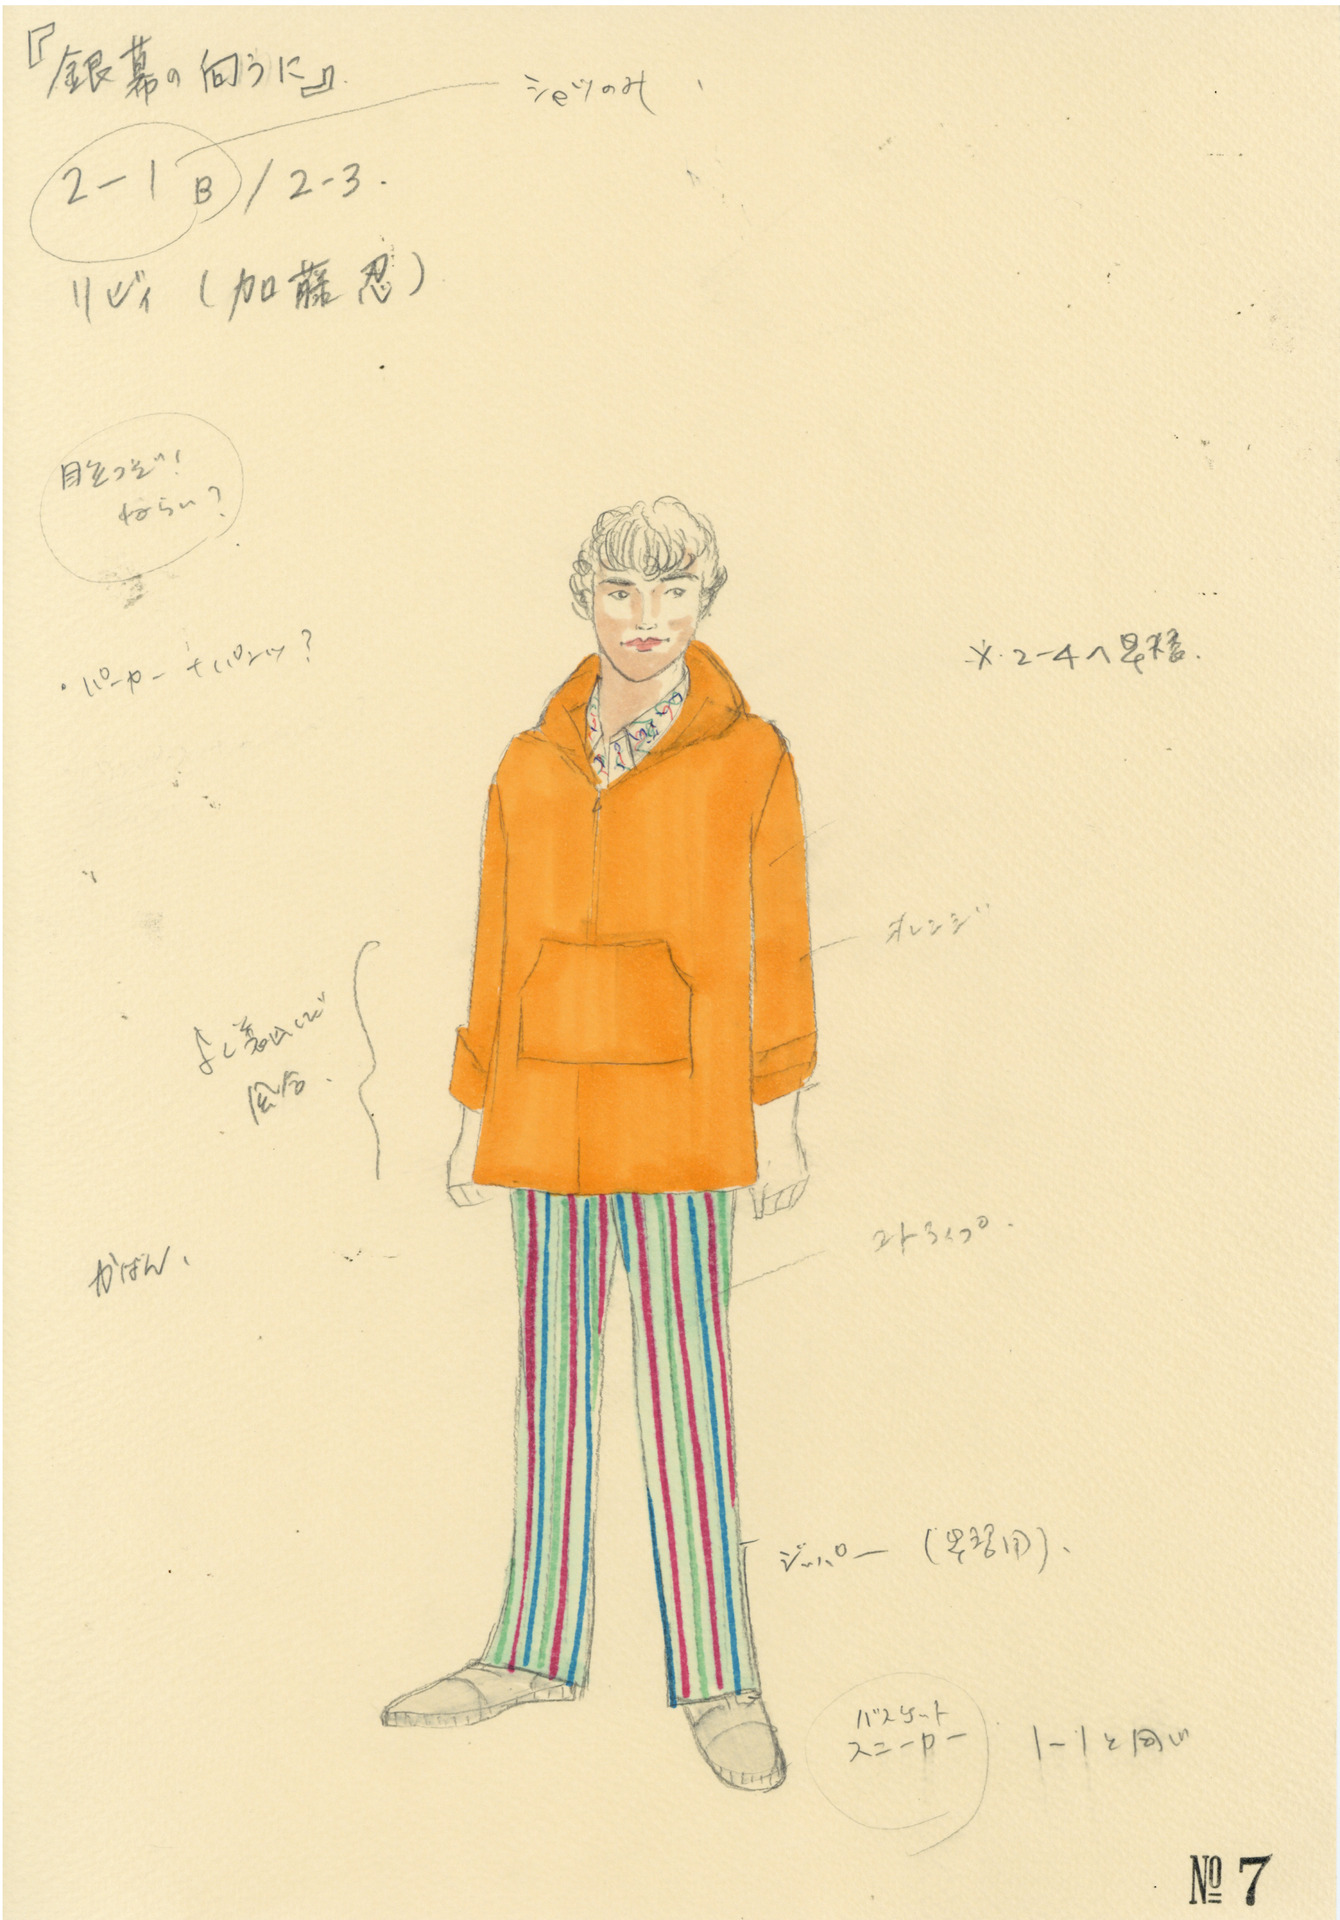 『銀幕の向うに』
シャツのみ
2-1 B / 2-3.
リビィ (加藤忍)
目立つぞ!
ねらい?
・パーカー + パンツ?
※ 2-4へ早替.
オレンジ
よく着こんで
風合.
かばん.
ストライプ.
ジッパー (早替用).
バスケット
スニーカー
1-1と同じ
№ 7